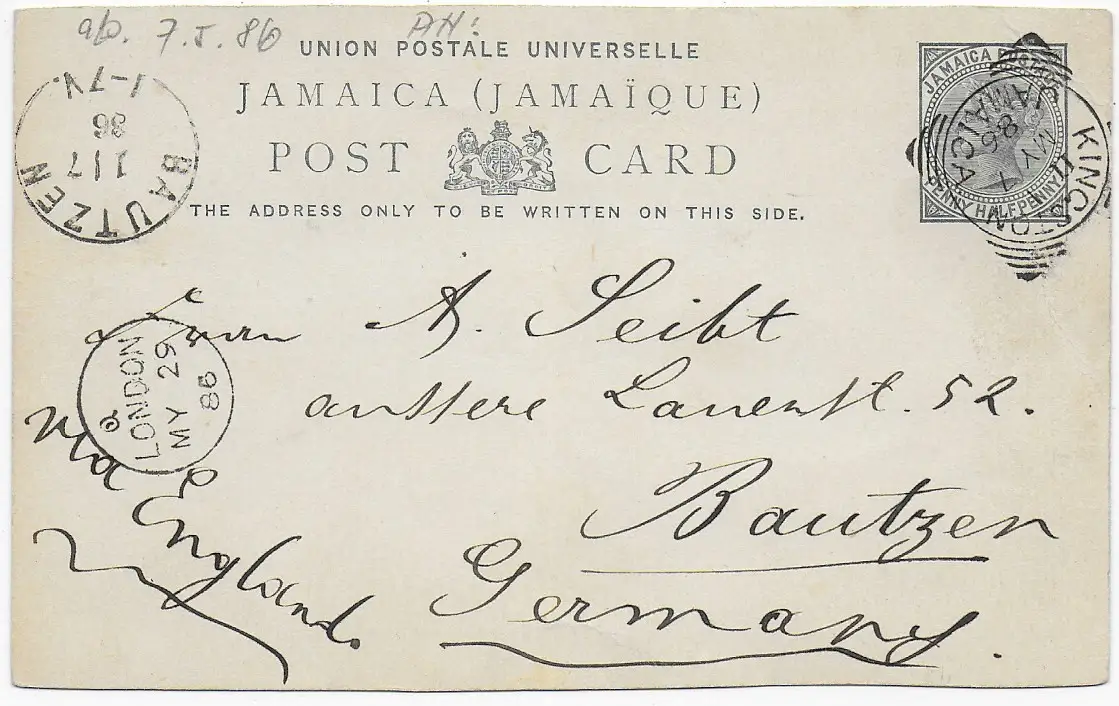 ab. 7.5.86 AH:
UNION POSTALE UNIVERSELLE
JAMAICA (JAMAÏQUE)
POST CARD
THE ADDRESS ONLY TO BE WRITTEN ON THIS SIDE.
JAMAICA POSTAGE
PENNY HALFPENNY
KINGSTON
JAMAICA
MY
86
BAUTZEN
1/7
86
1-7N.
Herrn A. Seibt
aussere Lauenst. 52.
Bautzen
Germany.
a
LONDON
MY 29
86
via England.